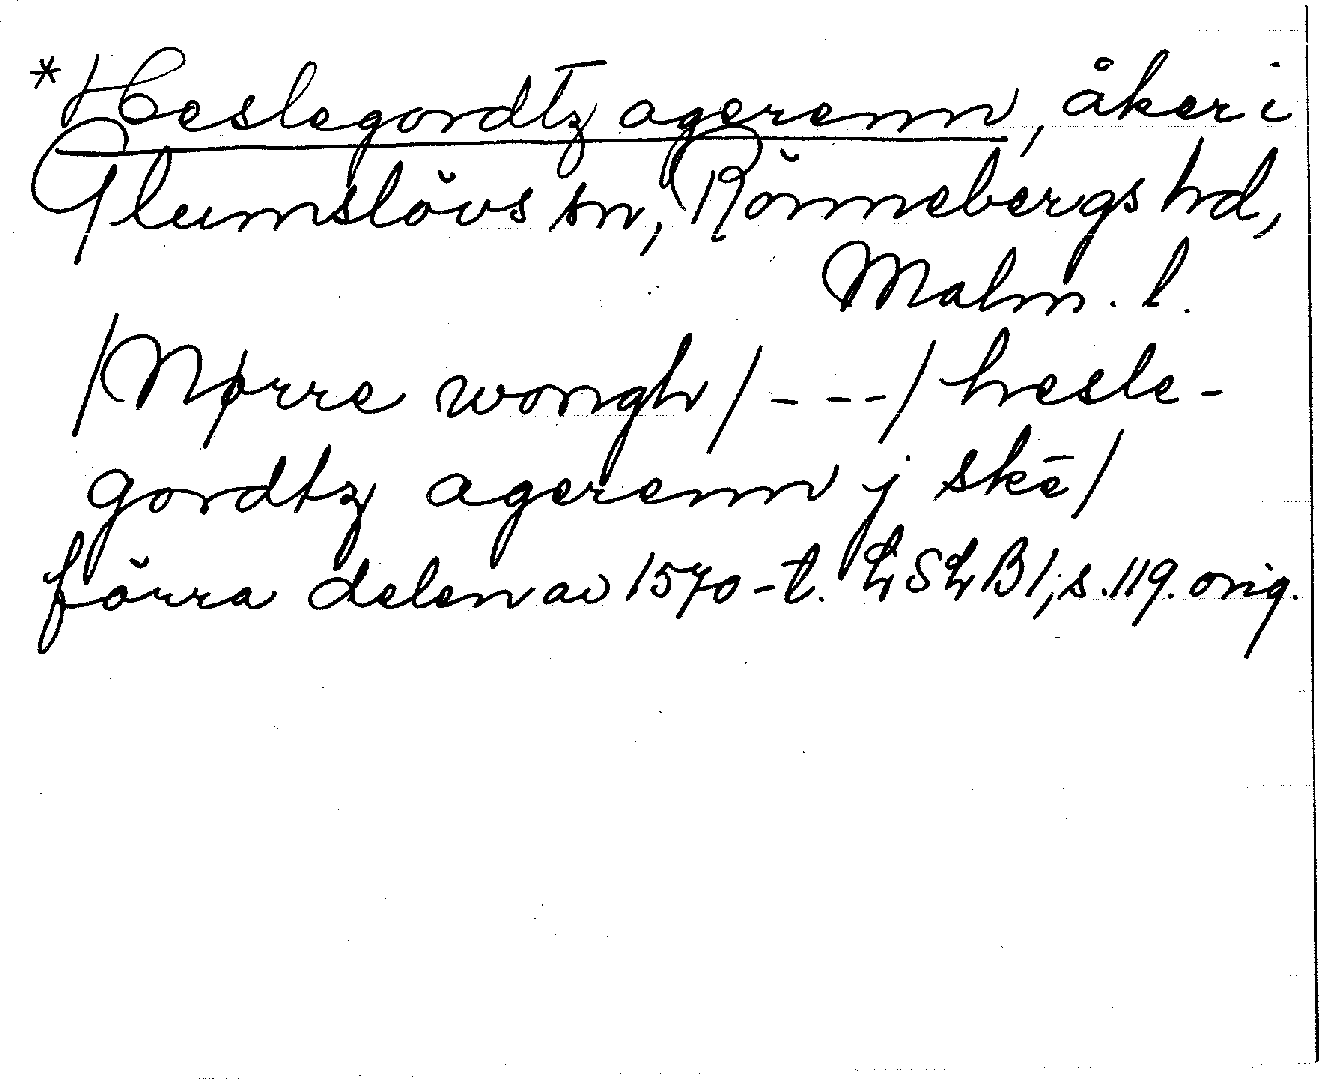 *Heslegordtz agerenn, åker i
Glumslövs sn, Rönnebergs hd,
Malm. l.
/Nørre wongh/ - - - / hesle-
gordtz agerenn j skē/
förra delen av 1570-t. LSLB1, s. 119. orig.